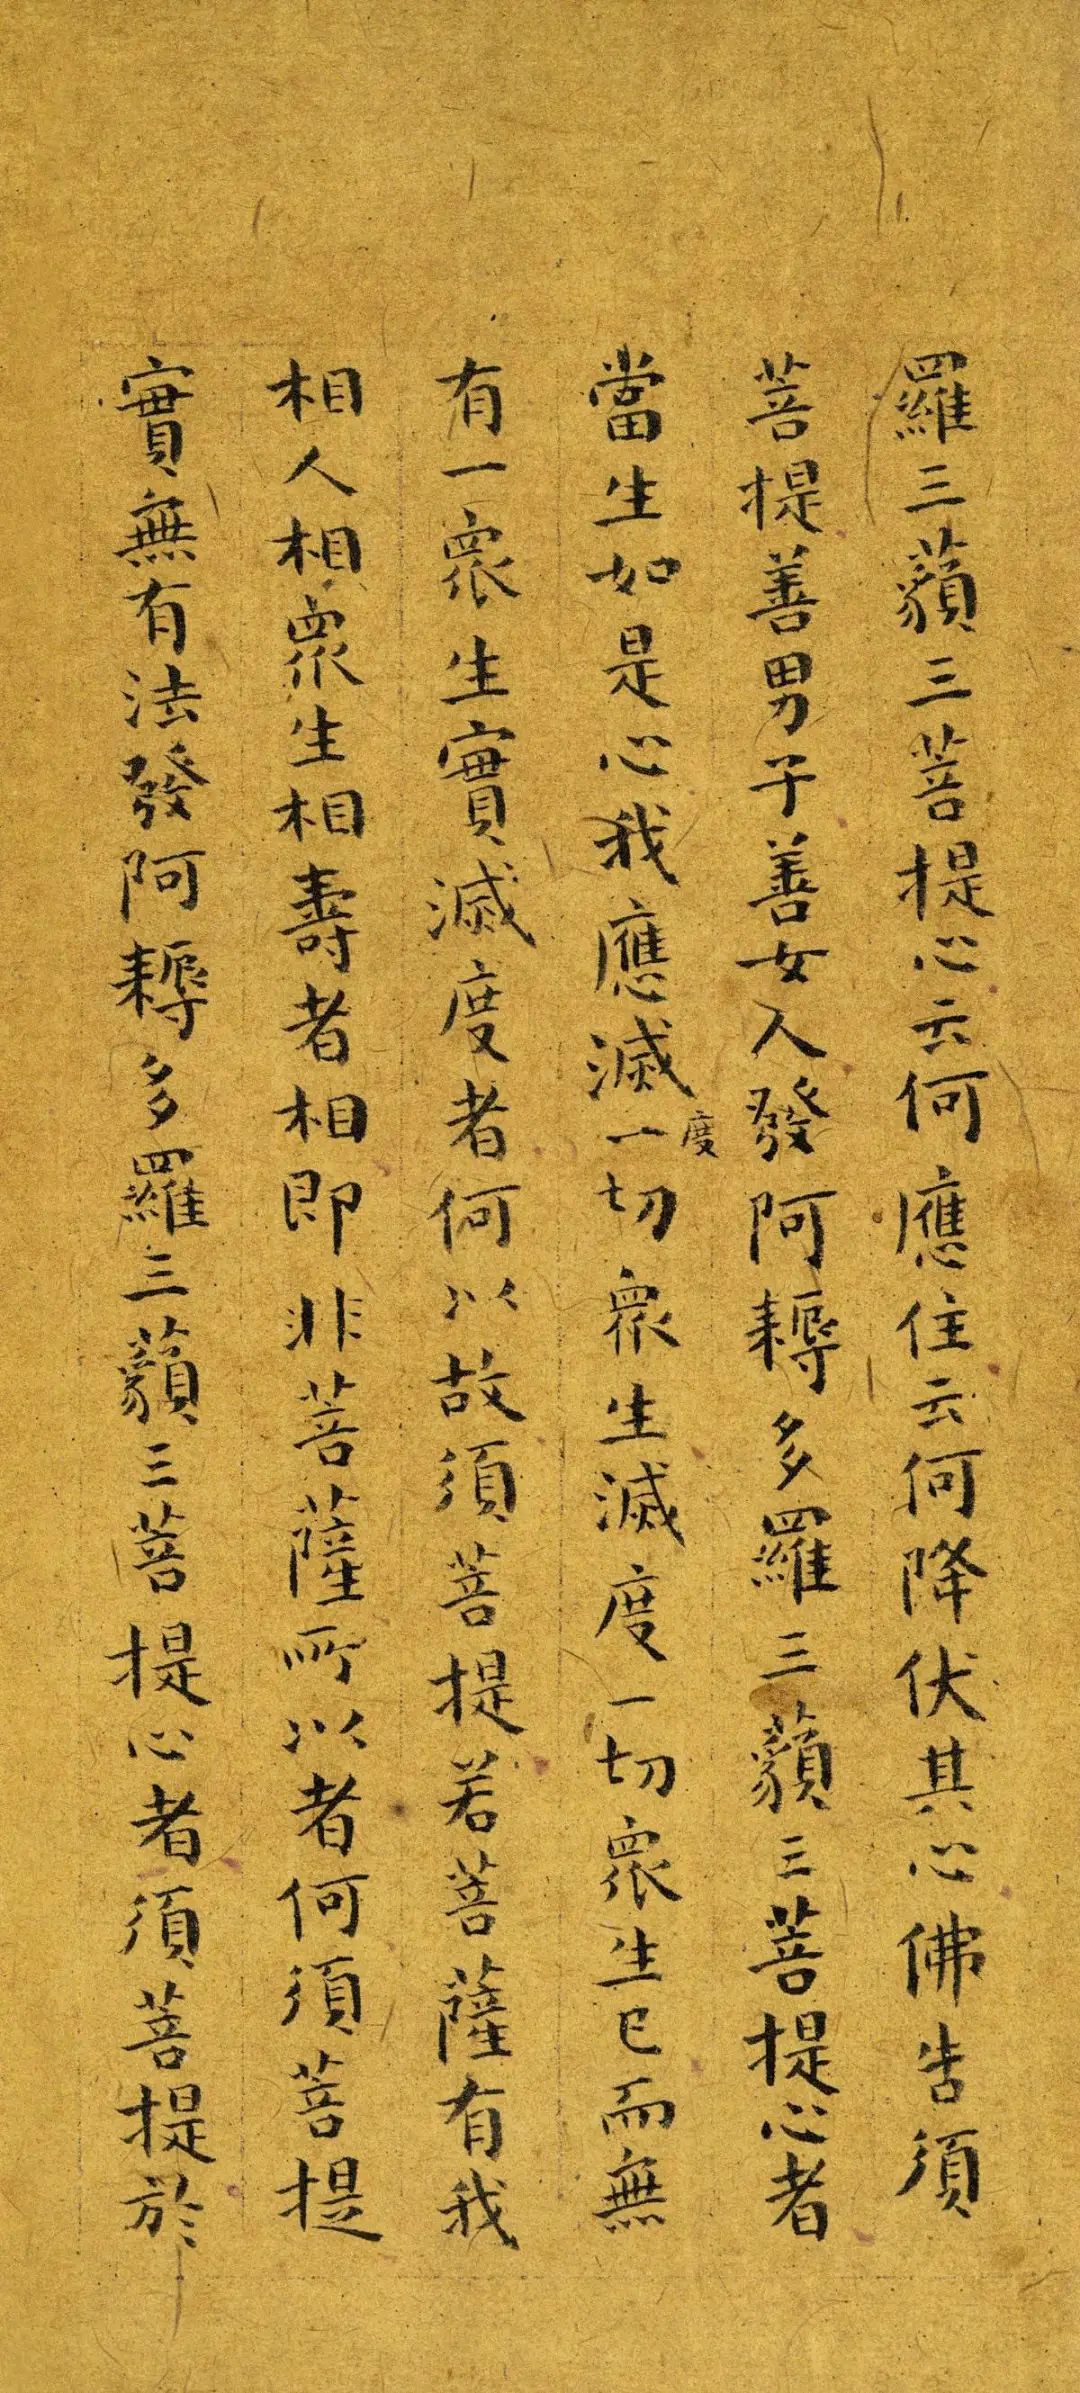 羅三藐三菩提心云何應住云何降伏其心佛告須
菩提善男子善女人發阿耨多羅三藐三菩提心者
當生如是心我應滅度一切眾生滅度一切眾生已而無
有一眾生實滅度者何以故須菩提若菩薩有我
相人相眾生相壽者相即非菩薩所以者何須菩提
實無有法發阿耨多羅三藐三菩提心者須菩提於